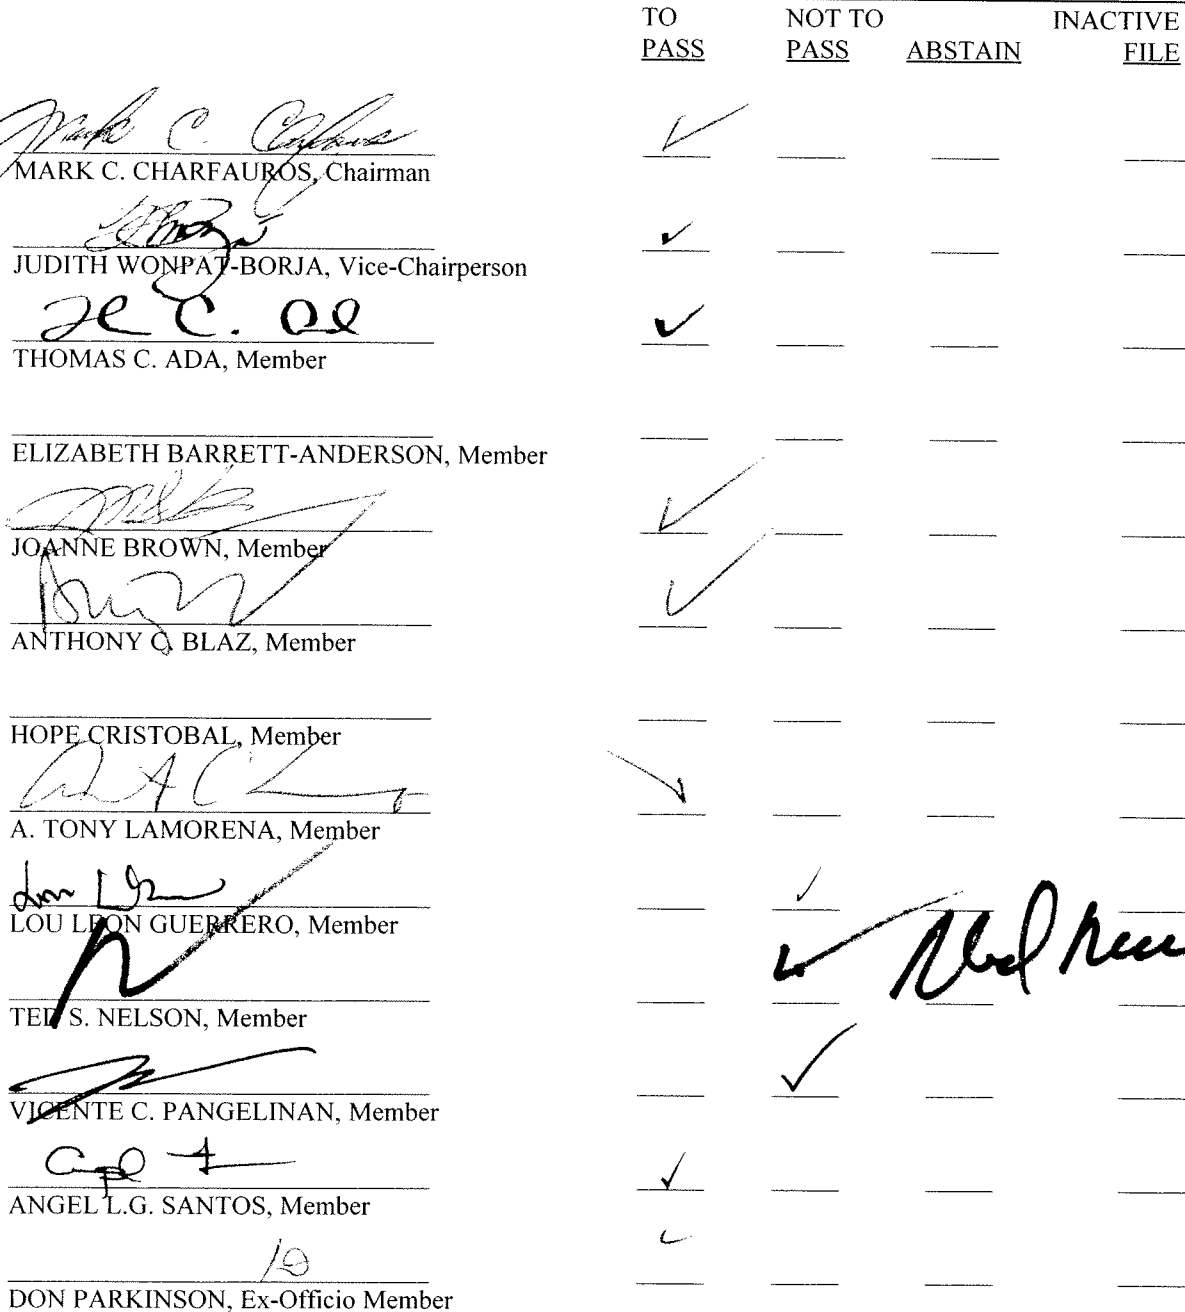 TO NOT TO INACTIVE
PASS PASS ABSTAIN FILE
Mark C. Charfauros
MARK C. CHARFAUROS, Chairman
JUDITH WONPAT-BORJA, Vice-Chairperson
THOMAS C. ADA, Member
ELIZABETH BARRETT-ANDERSON, Member
JOANNE BROWN, Member
ANTHONY C. BLAZ, Member
HOPE CRISTOBAL, Member
A. TONY LAMORENA, Member
LOU LEON GUERRERO, Member
TED S. NELSON, Member
VICENTE C. PANGELINAN, Member
ANGEL L.G. SANTOS, Member
DON PARKINSON, Ex-Officio Member